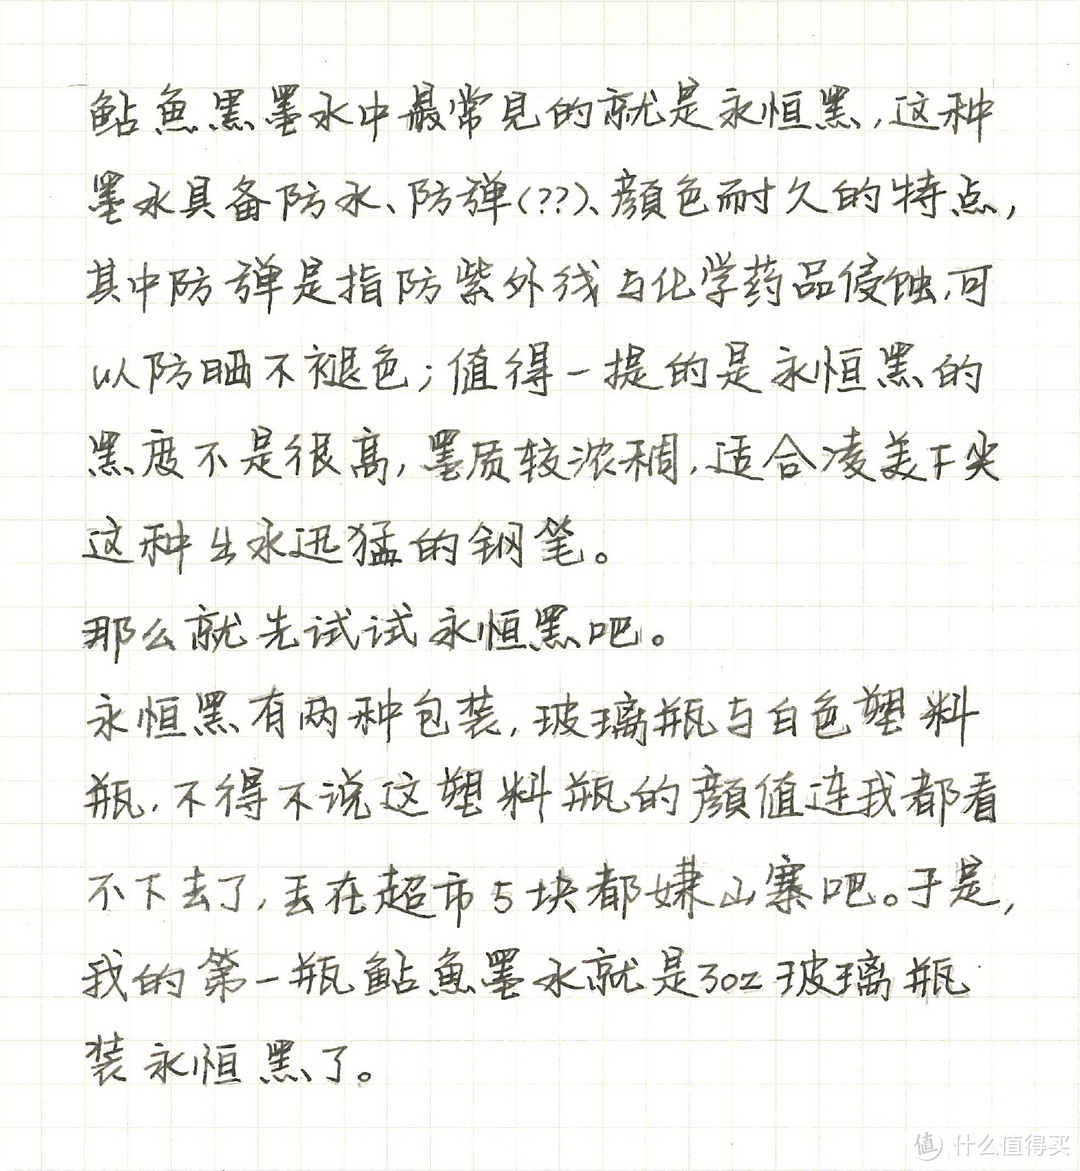 鲇魚黑墨水中最常見的就是永恒黑,这种
墨水具备防水、防弹(??)、顏色耐久的特点,
其中防弹是指防紫外线与化学药品侵蚀,可
以防晒不褪色;值得一提的是永恒黑的
黑度不是很高,墨质较浓稠,适合凌美F尖
这种出水迅猛的钢笔。
那么就先试试永恒黑吧。
永恒黑有两种包装,玻璃瓶与白色塑料
瓶,不得不说这塑料瓶的顏值连我都看
不下去了,丢在超市5块都嫌山寨吧。于是,
我的第一瓶鲇魚墨水就是3oz玻璃瓶
装永恒黑了。
值 什么值得买